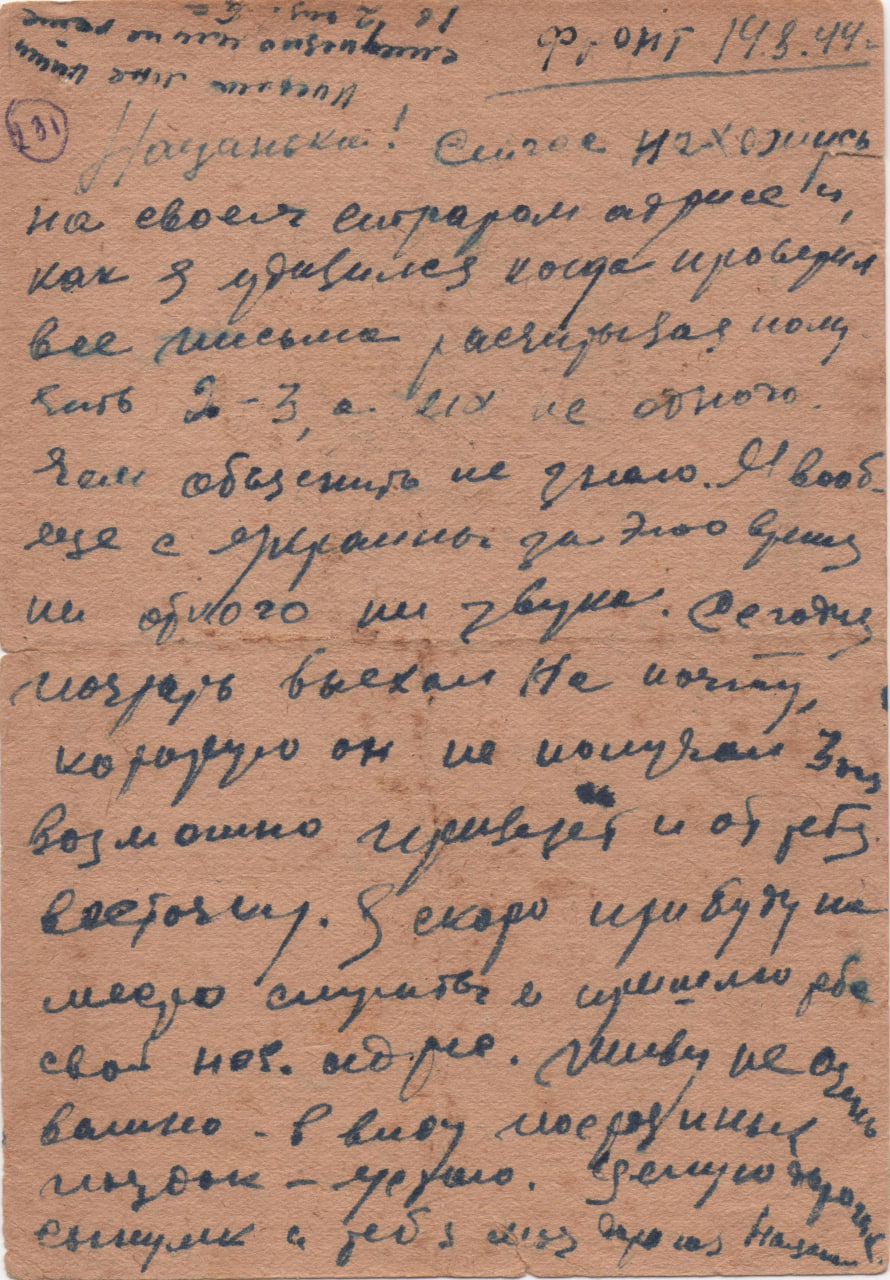 Фронт 14.8.44 г.
231
Нацанька! Сейчас нахожусь
на своем старом адресе и,
как я удивился когда проверил
все письма расчитывая полу-
чить 2-3, а их не одного.
Чем объяснить не знаю. Я вооб-
ще с Украины за это время
ни одного ни звука. Сегодня
выехал на почту,
которую он не получал 3 дня
возможно привезет и от тебя
весточку. Я скоро прибуду на
место служить и пришлю тебе
свой нов. адрес. Живу не очень
важно - в виду постоянных
поездок - устаю. Целую дорогих
сынулек и тебя моя дорогая